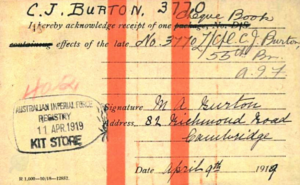 C.J. BURTON, 3770
I hereby acknowledge receipt of one package,
containing effects of the late No. 3770 C.J. Burton,
55th Bn.
A.I.F.
AUSTRALIAN IMPERIAL FORCE
REGISTRY
11 APR.1919
KIT STORE
Signature M A Burton
Address 82 Richmond Road
Cambridge
Date April 9th 1919